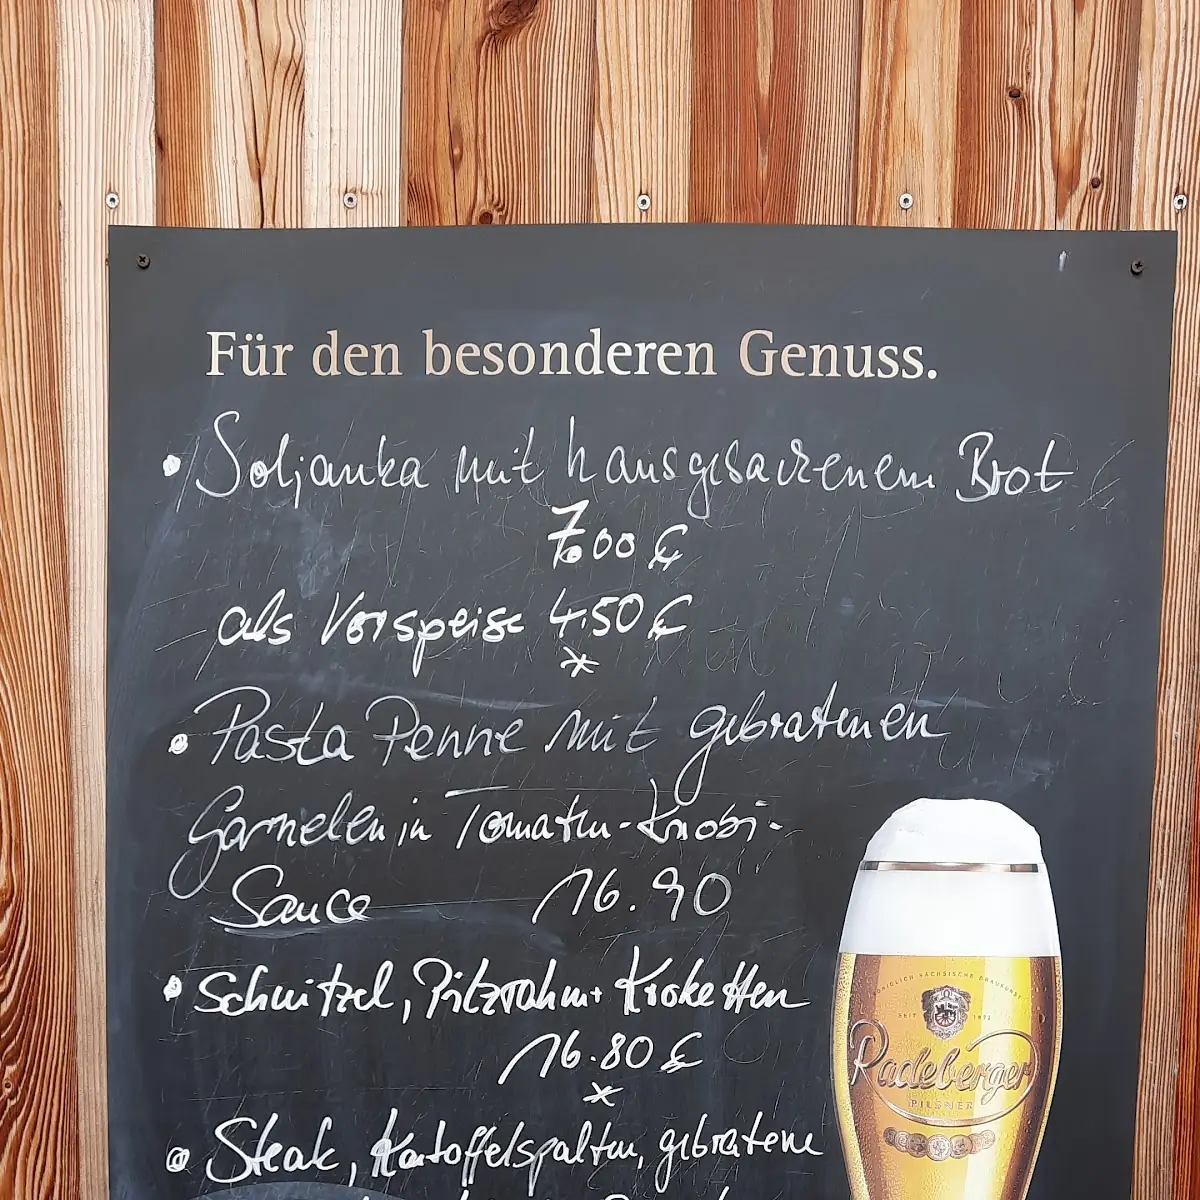 Für den besonderen Genuss.
• Soljanka mit hausgebackenem Brot
7.00 €
als Vorspeise 4.50 €
*
• Pasta Penne mit gebratenen
Garnelen in Tomaten-Knobi-
Sauce 16.90
• Schnitzel, Pilzrahm + Kroketten
16.80 €
*
• Steak, Kartoffelspalten, gebratene
KÖNIGLICH SÄCHSISCHE BRAUKUNST
SEIT 1872
Radeberger
PILSNER